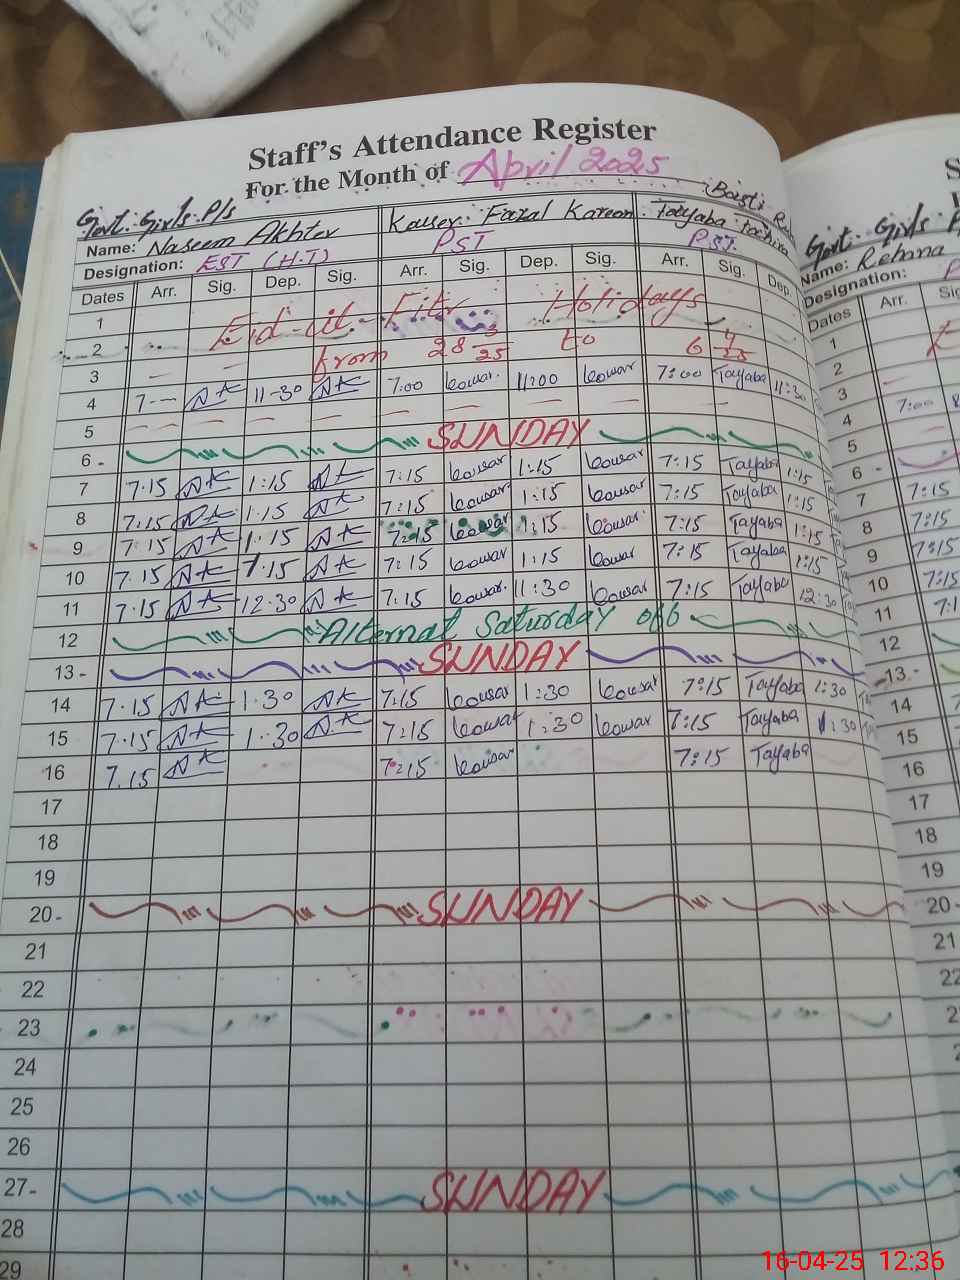 Staff's Attendance Register
For the Month of April 2025
Govt. Girls P/s Basti
Name: Naseem Akhter Kauser Fazal Kareem Tayyaba
Designation: EST (H.T) PST PST
Dates Arr. Sig. Dep. Sig. Arr. Sig. Dep. Sig. Arr. Sig. Dep.
1 Eid-ul-Fitr Holidays
2 from 28 3/25 to 6 4/25
3
4 7-- NK 11-30 NK 7:00 kousar 11:00 kousar 7:00 Tayyaba 11:30
5
6 - SUNDAY
7 7.15 NK 1:15 NK 7:15 kousar 1:15 kousar 7:15 Tayyaba 1:15
8 7:15 NK 1:15 NK 7:15 kousar 1:15 kousar 7:15 Tayyaba 1:15
9 7.15 NK 1.15 NK 7:15 kousar 1:15 kousar 7:15 Tayyaba 1:15
10 7.15 NK 1.15 NK 7:15 kousar 1:15 kousar 7:15 Tayyaba 1:15
11 7.15 NK 12.30 NK 7:15 kousar 11:30 kousar 7:15 Tayyaba 12:30
12 Alternat Saturday off
13 - SUNDAY
14 7.15 NK 1.30 NK 7:15 kousar 1:30 kousar 7:15 Tayyaba 1:30
15 7.15 NK 1.30 NK 7:15 kousar 1:30 kousar 7:15 Tayyaba 1:30
16 7.15 NK 7:15 kousar 7:15 Tayyaba
17
18
19
20 - SUNDAY
21
22
23
24
25
26
27 - SUNDAY
28
29
S
Govt. Girls
Name: Rehana
Designation: P
Dates Arr.
1
2
3
4 7:00
5
6 -
7 7:15
8 7:15
9 7:15
10 7:15
11
12
13 -
14
15
16
17
18
19
20 -
21
22
16-04-25 12:36